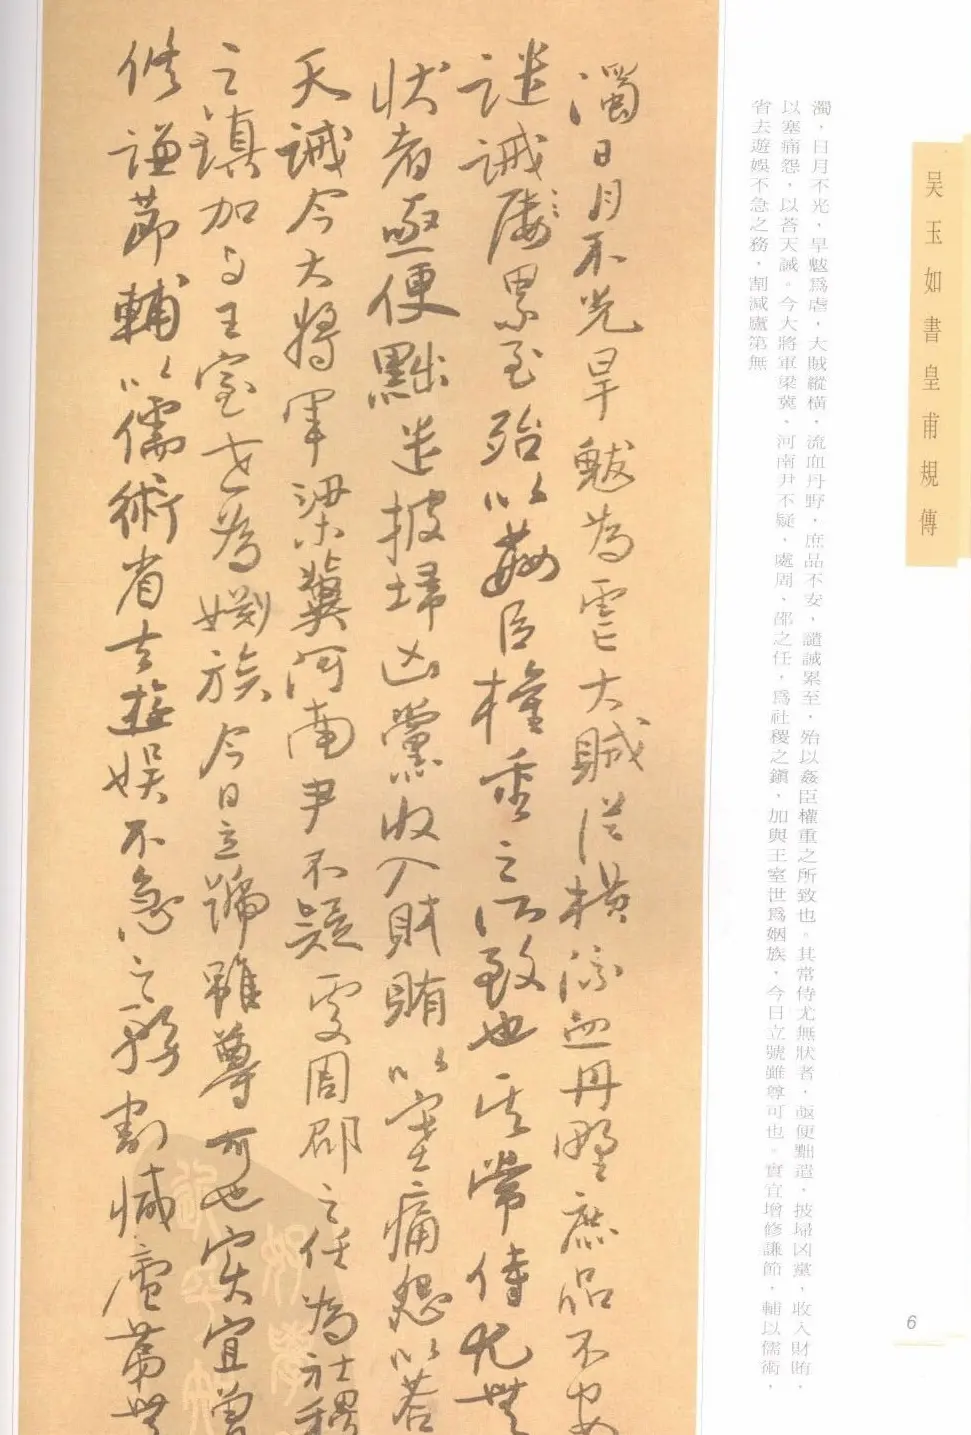 吴玉如書皇甫規傳
濁，日月不光，旱魃爲虐，大賊縱橫，流血丹野，庶品不安，譴誡累至，殆以姦臣權重之所致也。其常侍尤無狀者，亟便黜遣，披埽凶黨，收入財賄，
以塞痛怨，以荅天誡。今大將軍梁冀、河南尹不疑，處周、邵之任，爲社稷之鎮，加與王室世爲姻族，今日立號雖尊可也。實宜增修謙節，輔以儒術，
省去遊娛不急之務，割減廬第無
6
濁日月不光旱魃為虐大賊從橫流血丹野庶品不安
譴誡屢累至殆以姦臣權重之所致也其常侍尤無
狀者亟便黜遣披埽凶黨收入財賄以塞痛怨以荅
天誡今大將軍梁冀河南尹不疑處周邵之任為社稷
之鎮加與王室世為姻族今日立號雖尊可也实宜增
修謙節輔以儒術省去遊娛不急之務割減廬第無